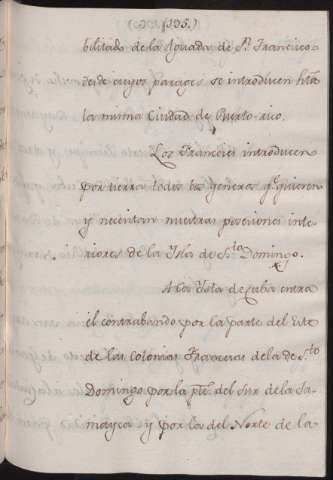 (195.)
bilitado de la Aguada de Sn. Francisco
desde cuyos parages se introducen hta.
la misma Ciudad de Puerto-rico.
Los Franceses introducen
por tierra todos los generos qe. quieren
y necesitan nuestras posesiones inte-
riores de la Ysla de Sto. Domingo.
A la Ysla de Cuba entra
el contrabando por la parte del Este
de las colonias Francesas de la de Sto.
Domingo por la pte. del Sur de la Ja-
mayca y por la del Norte de la